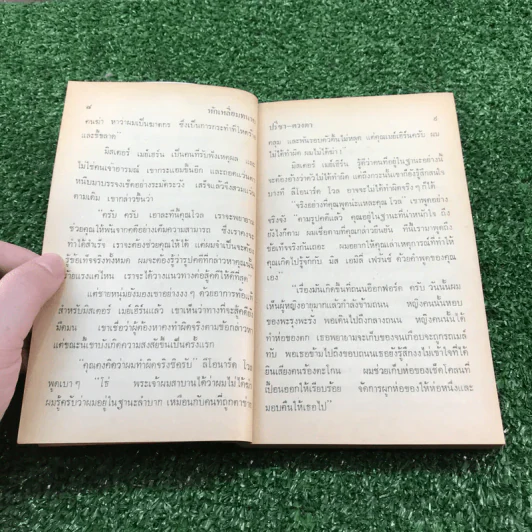 ๘ หักเหลี่ยมทนาย
คนฆ่า หาว่าผมเป็นฆาตกร ซึ่งเป็นการกระทำที่โหดร้าย
และขี้ขลาด"
มิสเตอร์ เมย์เฮิร์น เป็นคนที่รับฟังเหตุผล และ
ไม่ใช่คนเจ้าอารมณ์ เขากระแอมขึ้นอีก และถอดแว่น
หนีบมาบรรจงเช็ดอย่างระมัดระวัง เสร็จแล้วจึงสวมแว่น
ตามเดิม เขากล่าวขึ้นว่า
"ครับ ครับ เอาละทีนี้คุณโวล เราจะพยายาม
ช่วยคุณให้พ้นจากคดีอย่างเต็มความสามารถ ซึ่งเราคงจะ
ทำได้สำเร็จ เราจะต้องช่วยคุณให้ได้ แต่ผมจำเป็นจะต้อง
รู้ข้อเท็จจริงทั้งหมด ผมจะต้องรู้ว่ารูปคดีที่กล่าวหาคุณนั้น
ร้ายแรงแค่ไหน เราจะได้วางแนวทางต่อสู้คดีให้ดีที่สุด"
แต่ชายหนุ่มยังมองเขาอย่างงงๆ ด้วยอาการท้อแท้
สำหรับมิสเตอร์ เมย์เฮิร์นแล้ว เขาเห็นว่าทางที่จะสู้คดี
มืดมน เขาเชื่อว่าผู้ต้องหาคงทำผิดจริงตามข้อกล่าวหา
แต่ขณะนี้เขาบังเกิดความสงสัยขึ้นเป็นครั้งแรก
"คุณคงคิดว่าผมทำผิดจริงซีครับ" ลีโอนาร์ด โวล
พูดเบาๆ "โธ่ พระเจ้าผมสาบานได้ว่าผมไม่ได้
ผมรู้ครับว่าผมอยู่ในฐานะลำบาก เหมือนกับคนที่ถูกตาข่าย
ปริชา-ดวงตา ๙
คลุม และพันรอบตัวดิ้นไม่หลุด แต่คุณเมย์เฮิร์นครับ ผม
ไม่ได้ทำผิด ผมไม่ได้ฆ่า"
มิสเตอร์ เมย์เฮิร์น รู้ดีว่าคนที่อยู่ในฐานะอย่างนี้
จะต้องอ้างว่าตัวไม่ได้ทำผิด แต่ถึงกระนั้นเขาก็ยังรู้สึกสนใจ
บางที ลีโอนาร์ด โวล อาจจะไม่ได้ทำผิดจริงๆก็ได้
"จริงอย่างที่คุณพูดน่ะแหละคุณ โวล เขาพูดอย่าง
จริงจัง "ตามรูปคดีแล้ว คุณอยู่ในฐานะที่น่าหนักใจ ถึง
ยังไงก็ตาม ผมเชื่อตามที่คุณกล่าวยืนยัน ทีนี้เรามาพูดถึง
ข้อเท็จจริงกันเถอะ ผมอยากให้คุณเล่าเหตุการณ์ที่ทำให้
คุณเกิดไปรู้จักกับ มิส เอมิลี่ เฟร้นซ์ ด้วยคำพูดของคุณ
เอง"
"เรื่องมันเกิดขึ้นที่ถนนอ๊อกฟอร์ด ครับ วันนั้นผม
เห็นผู้หญิงอายุมากแล้วกำลังข้ามถนน หญิงคนนั้นหอบ
ของพะรุงพะรัง พอเดินไปถึงกลางถนน หญิงคนนั้นได้
ทำห่อของตก เธอพยายามจะเก็บของจนเกือบจะถูกรถเมล์
ทับ พอเธอข้ามไปถึงขอบถนนเธอยังรู้สึกงงไม่เข้าใจที่ได้
ยินเสียงคนร้องตะโกน ผมช่วยเก็บห่อของเช็ดโคลนที่
เปื้อนออกให้เรียบร้อย จัดการผูกห่อของให้ห่อหนึ่งและ
มอบคืนให้เธอไป"